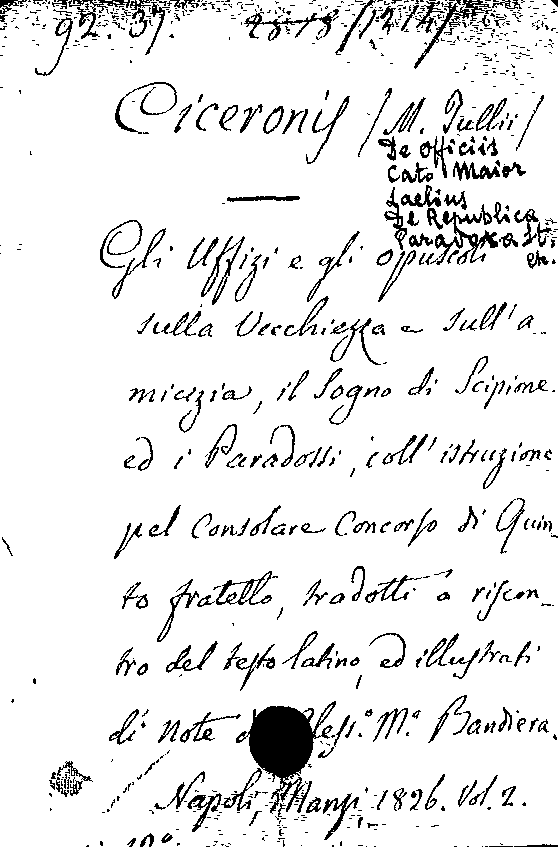 92. 37. 2878/1214/
Ciceronis /M. Tullii/
De Officiis
Cato Maior
Laelius
De Republica
Paradoxa St.
etc.
Gli Uffizi e gli opuscoli
sulla Vecchiezza e sull'a-
micizia, il Sogno di Scipione
ed i Paradossi, coll'istruzione
pel Consolare Concorso di Quin-
to fratello, tradotti a riscon-
tro del testo latino, ed illustrati
di note d Aless.º M.ª Bandiera.
Napoli, Manzi, 1826. Vol. 2.